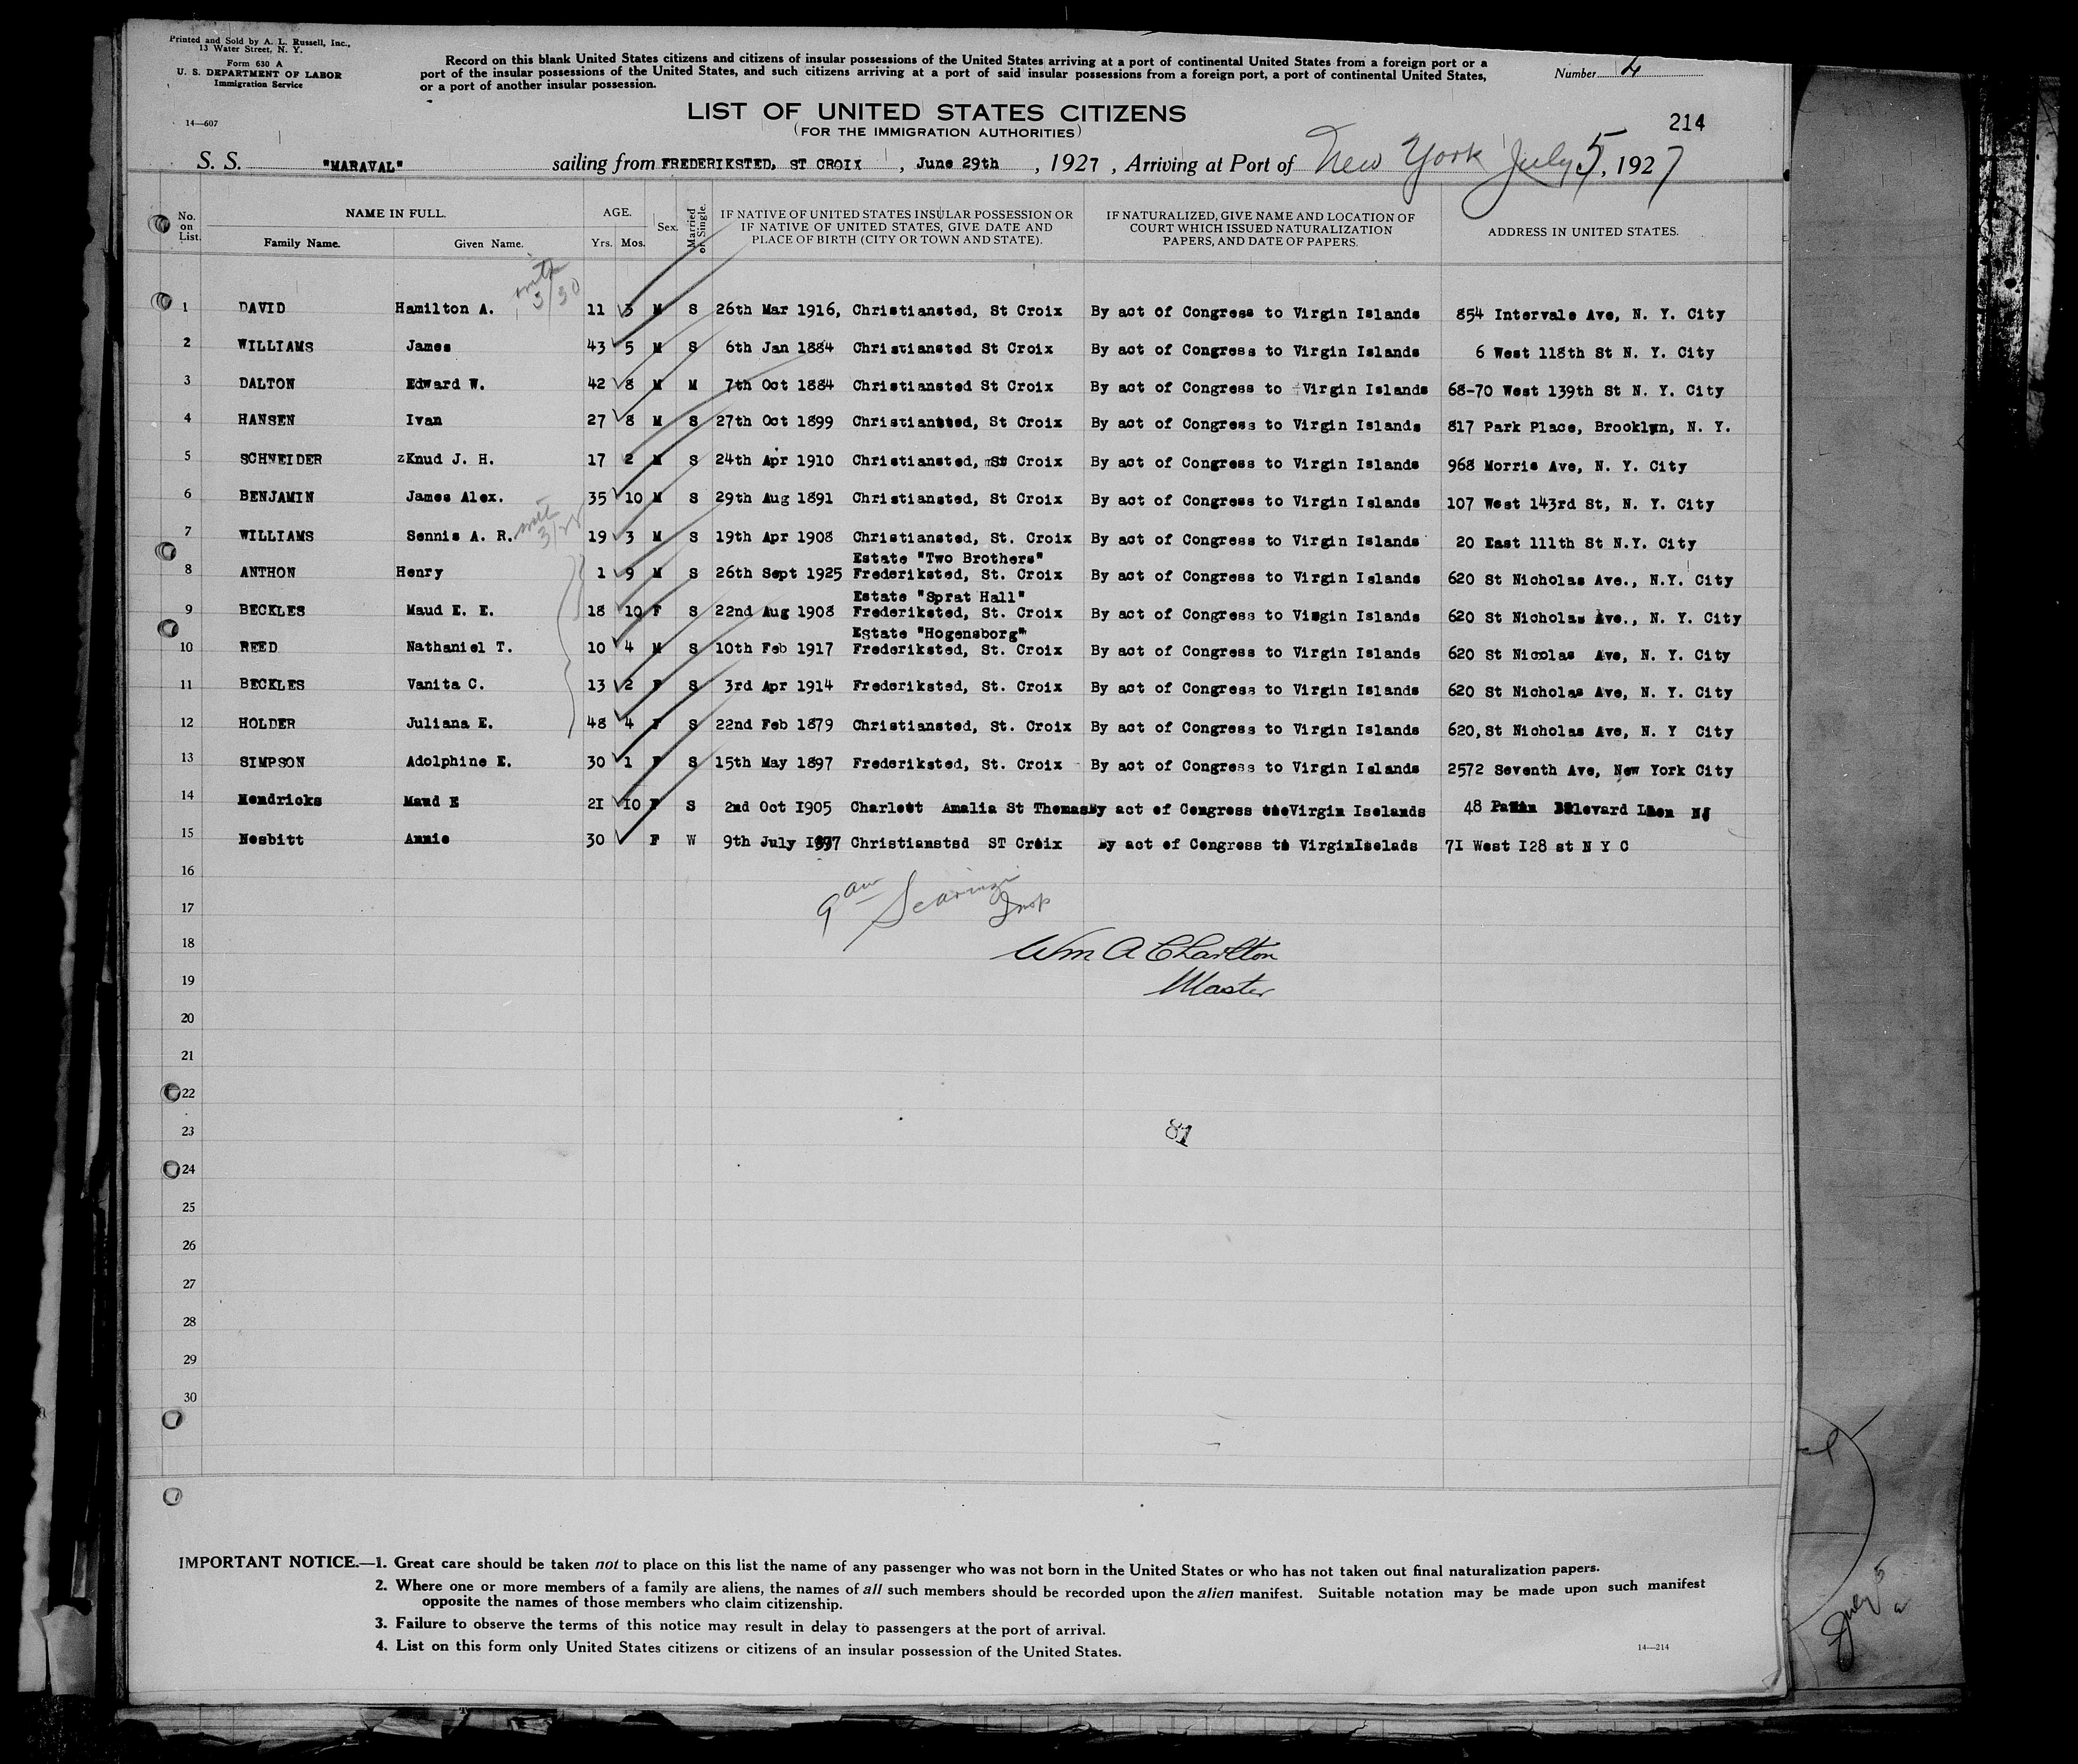 Printed and Sold by A. L. Russell, Inc.,
13 Water Street, N. Y.
Form 630 A
U. S. DEPARTMENT OF LABOR
Immigration Service
14—607
Record on this blank United States citizens and citizens of insular possessions of the United States arriving at a port of continental United States from a foreign port or a
port of the insular possessions of the United States, and such citizens arriving at a port of said insular possessions from a foreign port, a port of continental United States,
or a port of another insular possession.
Number 4
LIST OF UNITED STATES CITIZENS
(FOR THE IMMIGRATION AUTHORITIES)
214
S. S. "MARAVAL" sailing from FREDERIKSTED, ST CROIX, June 29th, 1927, Arriving at Port of New York July 5, 1927
No. on List.
NAME IN FULL.
Family Name. Given Name.
AGE.
Yrs. Mos.
Sex.
Married or Single.
IF NATIVE OF UNITED STATES INSULAR POSSESSION OR
IF NATIVE OF UNITED STATES, GIVE DATE AND
PLACE OF BIRTH (CITY OR TOWN AND STATE).
IF NATURALIZED, GIVE NAME AND LOCATION OF
COURT WHICH ISSUED NATURALIZATION
PAPERS, AND DATE OF PAPERS.
ADDRESS IN UNITED STATES.
3/30
1 DAVID Hamilton A. 11 3 M S 26th Mar 1916, Christiansted, St Croix By act of Congress to Virgin Islands 854 Intervale Ave, N. Y. City
2 WILLIAMS James 43 5 M S 6th Jan 1884 Christiansted St Croix By act of Congress to Virgin Islands 6 West 118th St N. Y. City
3 DALTON Edward W. 42 8 M M 7th Oct 1884 Christiansted St Croix By act of Congress to Virgin Islands 68-70 West 139th St N. Y. City
4 HANSEN Ivan 27 8 M S 27th Oct 1899 Christiansted, St Croix By act of Congress to Virgin Islands 817 Park Place, Brooklyn, N. Y.
5 SCHNEIDER zKnud J. H. 17 2 M S 24th Apr 1910 Christiansted, St Croix By act of Congress to Virgin Islands 968 Morris Ave, N. Y. City
6 BENJAMIN James Alex. 35 10 M S 29th Aug 1891 Christiansted, St Croix By act of Congress to Virgin Islands 107 West 143rd St, N. Y. City
7 WILLIAMS Sennis A. R. 19 3 M S 19th Apr 1908 Christiansted, St. Croix By act of Congress to Virgin Islands 20 East 111th St N.Y. City
Estate "Two Brothers"
8 ANTHON Henry 1 9 M S 26th Sept 1925 Frederiksted, St. Croix By act of Congress to Virgin Islands 620 St Nicholas Ave., N.Y. City
Estate "Sprat Hall"
9 BECKLES Maud E. E. 18 10 F S 22nd Aug 1908 Frederiksted, St. Croix By act of Congress to Virgin Islands 620 St Nicholas Ave., N. Y. City
Estate "Hogensborg"
10 REED Nathaniel T. 10 4 M S 10th Feb 1917 Frederiksted, St. Croix By act of Congress to Virgin Islands 620 St Nicolas Ave, N. Y. City
11 BECKLES Vanita C. 13 2 F S 3rd Apr 1914 Frederiksted, St. Croix By act of Congress to Virgin Islands 620 St Nicholas Ave, N. Y. City
12 HOLDER Juliana E. 48 4 F S 22nd Feb 1879 Christiansted, St. Croix By act of Congress to Virgin Islands 620, St Nicholas Ave, N. Y City
13 SIMPSON Adolphine E. 30 1 F S 15th May 1897 Frederiksted, St. Croix By act of Congress to Virgin Islands 2572 Seventh Ave, New York City
14 Hendricks Maud E 21 10 F S 2nd Oct 1905 Charlott Amalia St Thomas By act of Congress Virgin Iselands 48 NJ
15 Nesbitt Annie 30 F W 9th July 1897 Christianstsd ST Croix By act of Congress to VirginIselads 71 West 128 st N Y C
16
17
18
19
20
21
22
23
24
25
26
27
28
29
30
Insp
Wm A Charlton
Master
81
IMPORTANT NOTICE.—1. Great care should be taken not to place on this list the name of any passenger who was not born in the United States or who has not taken out final naturalization papers.
2. Where one or more members of a family are aliens, the names of all such members should be recorded upon the alien manifest. Suitable notation may be made upon such manifest
opposite the names of those members who claim citizenship.
3. Failure to observe the terms of this notice may result in delay to passengers at the port of arrival.
4. List on this form only United States citizens or citizens of an insular possession of the United States.
14—214
July 5